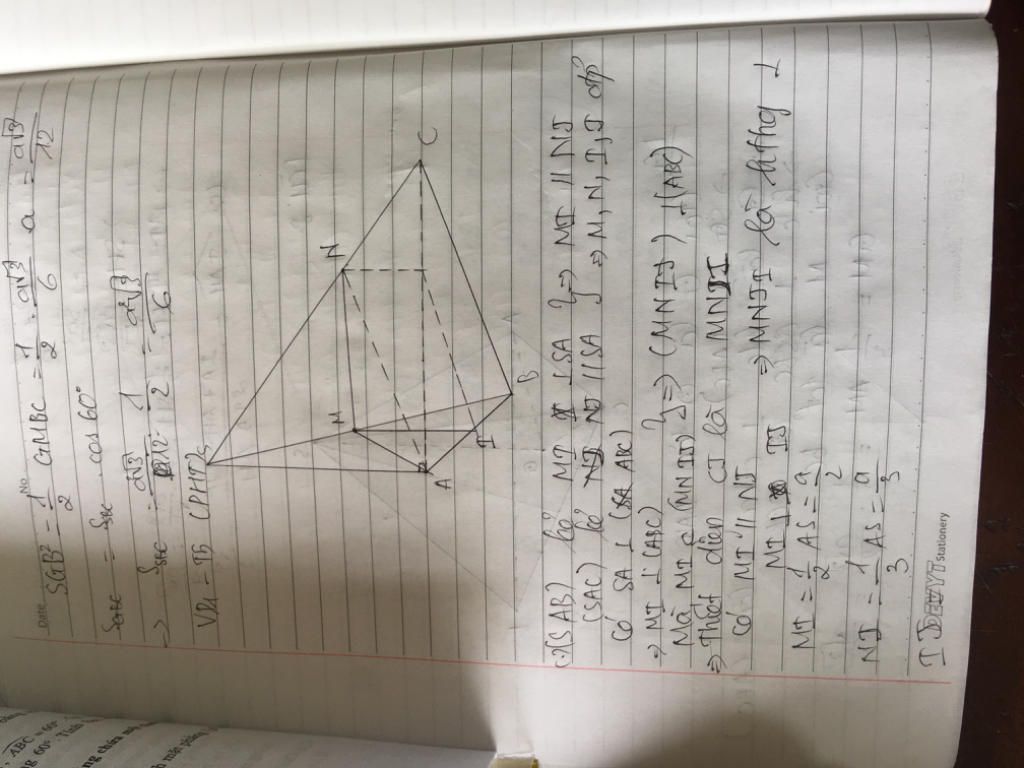 Date No.
SGB² = 1/2 GMBC = 1/2 . a√3/6 . a = a√3/12
S_ABC = S_SBC . cos 60°
→ S_SBC = a√3/12 : 1/2 = a√3/6
VD4 - T5 (PHT2)
S
M
N
A
I
B
C
(SAB) kẻ MI // SA } => MI // NJ
(SAC) kẻ NJ // SA => M, N, I, J đp
Có SA ⊥ (ABC)
=> MI ⊥ (ABC)
Mà MI ⊂ (MNIJ) } => (MNIJ) ⊥ (ABC)
=> Thiết diện là MNJI
Có MI // NJ
MI ⊥ IJ => MNJI là hthg ⊥
MI = 1/2 AS = a/2
NJ = 1/3 AS = a/3
IJ
stationery
ABC = 60°
60°. Tính